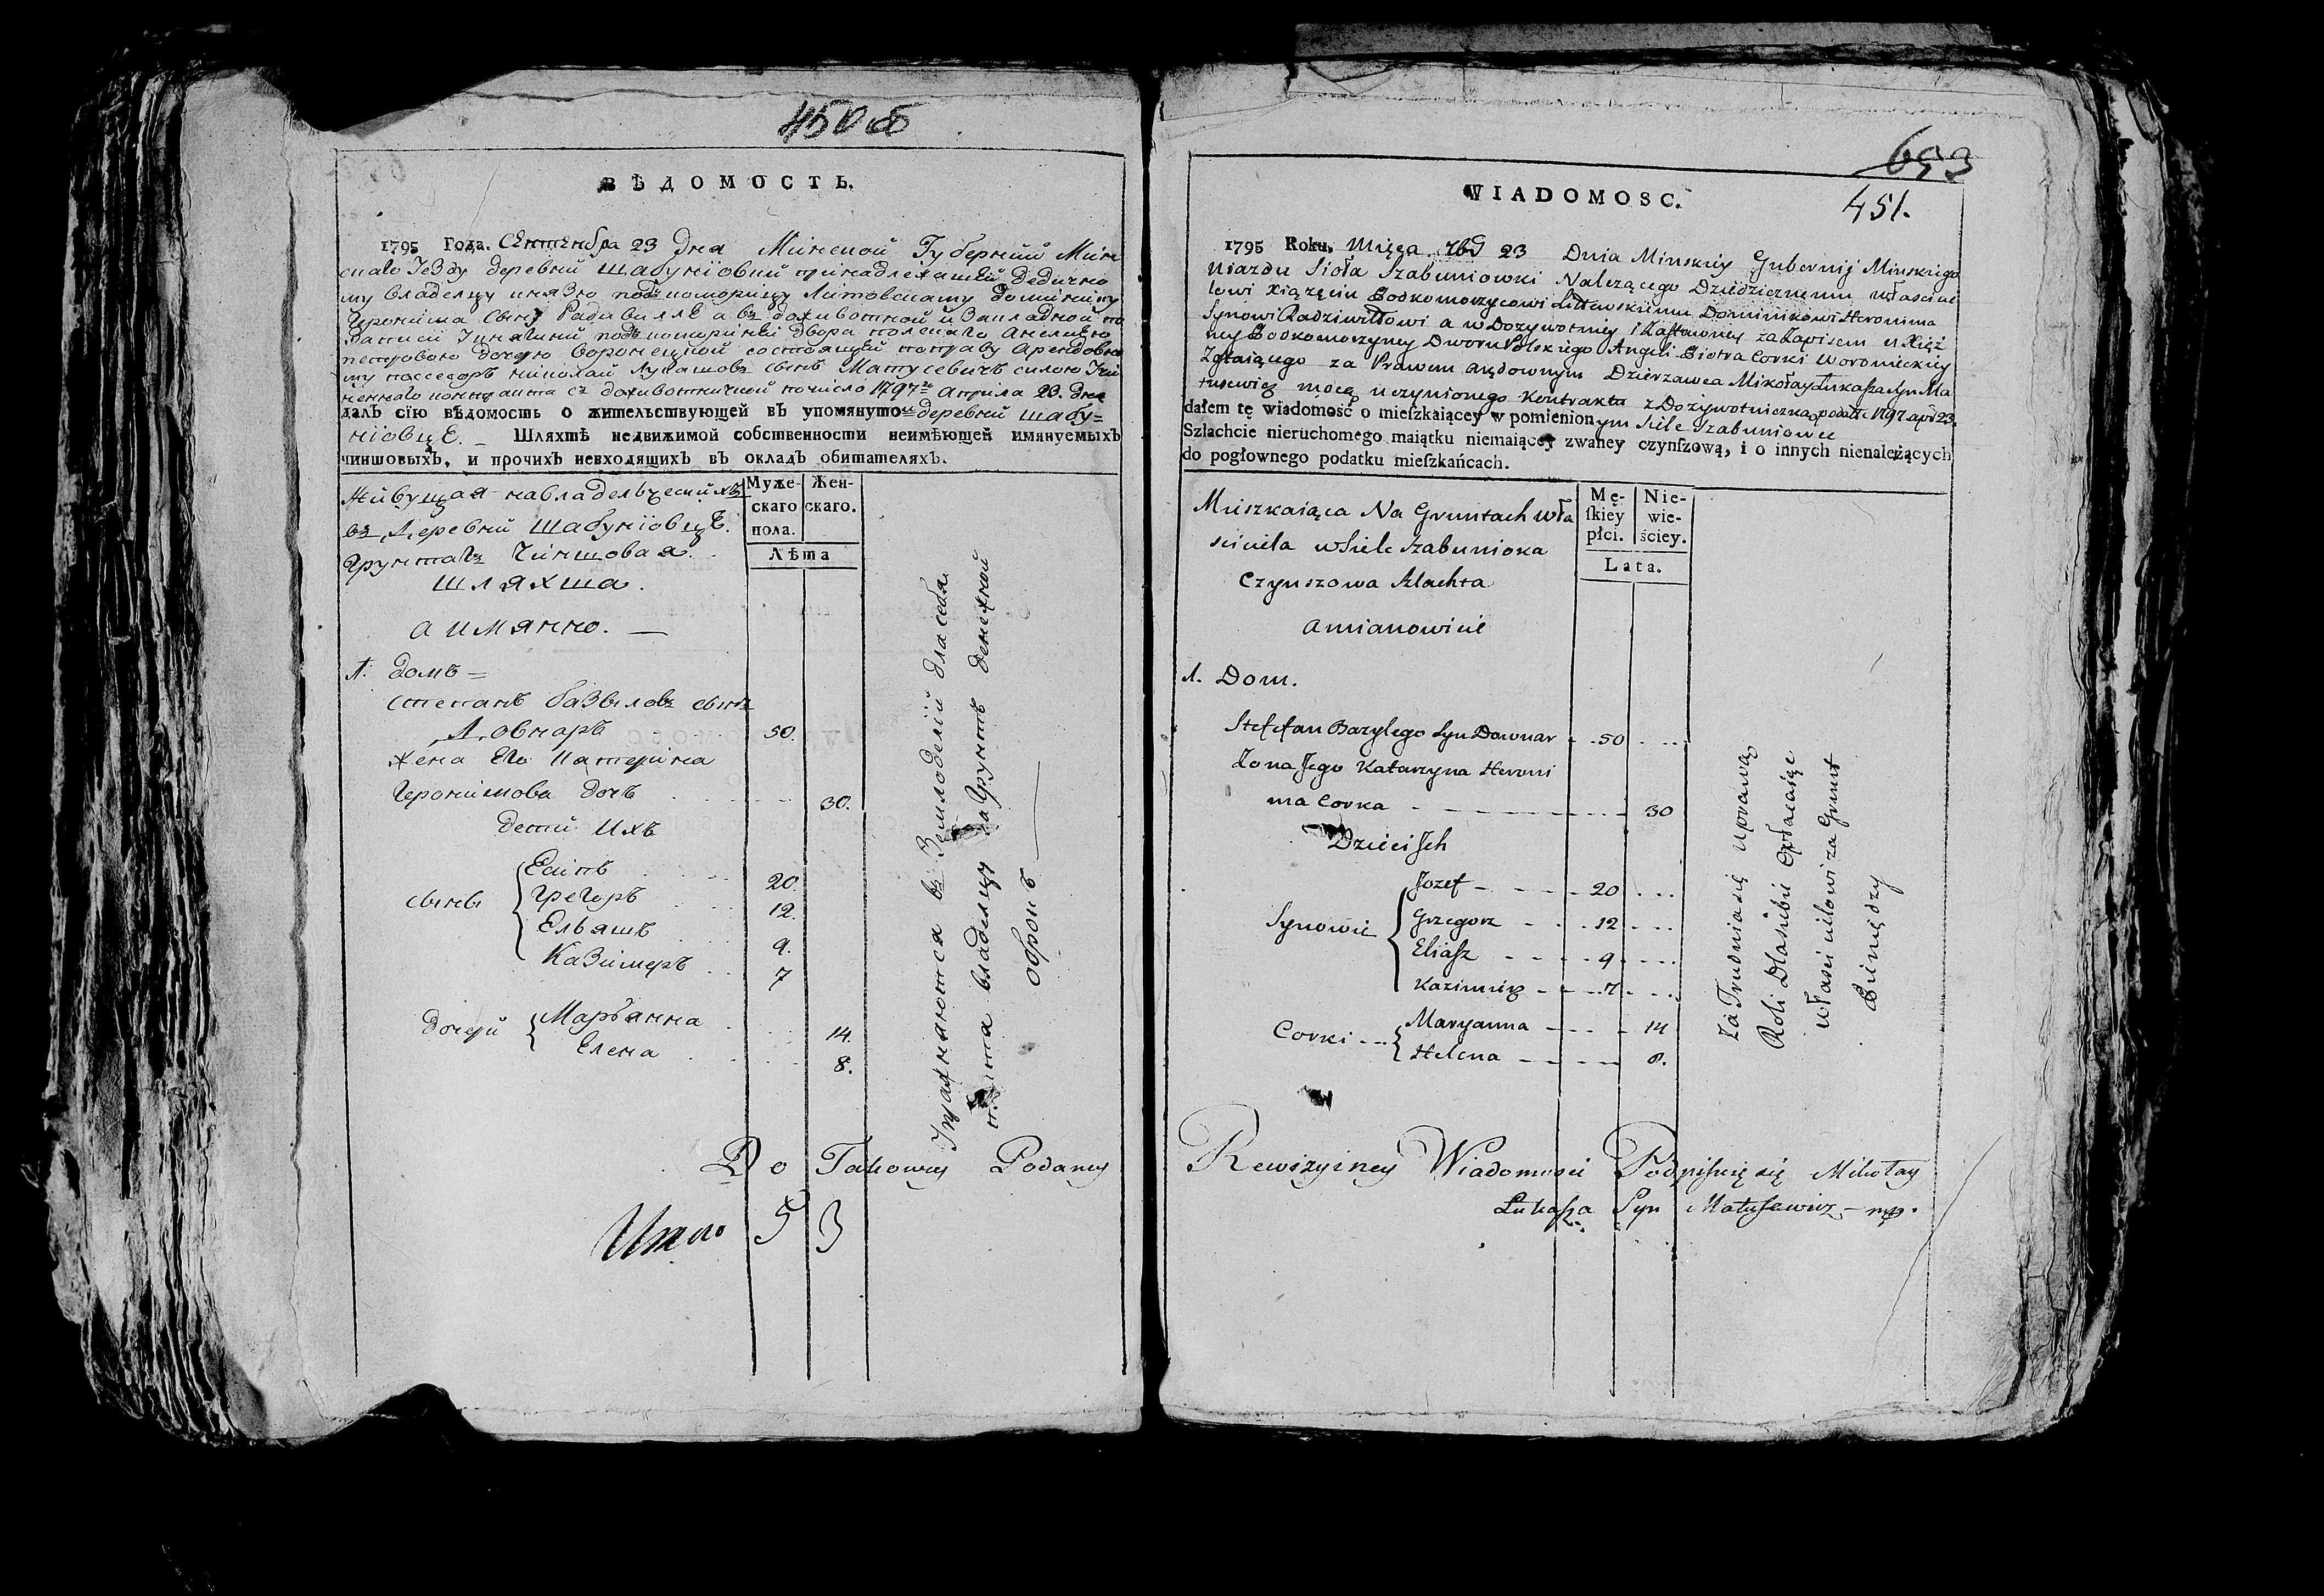 450 об
ВѢДОМОСТЬ.
1795 Года. Сентебра 23 Дня Минской Губерній Мин
скаго Уезду деревній Шабуніовкй принадлежащей Дедично
му Владелцу князю подкоморицу Литовскому Доминику
Геронима Сыну Радивиллѣ а въ доживотной и Закладной по
петрово дочерю Воронецкой состоящей поправу Арендовно
му поссесоръ Николай Лукашовъ сынъ Матусевичъ силою Учи
ненного контракта съ доживотничкой почисло 1797 Априла 23. Дня
далъ сїю вѣдомость о жительствующей въ упомянутой деревній Шабу=
ніовцЕ. – Шляхтѣ недвижимой собственности неимѣющей имянуемыхъ
чиншовыхъ, и прочихъ невходящихъ въ окладъ обитателяхъ.
Живущая на владелческихъ
въ Деревній Шабуніовцѣ.
Грунтахъ Чиншовая
Шляхта.
а имянно. —
Муже-
скаго
пола.
Жен-
скаго.
Лѣта
1. домъ =
Степанъ базылевъ сынъ
Довнаръ 50.
жена Его Катерина
Геронимова дочь 30.
дети Ихъ
сыны
Есипъ 20.
Грегоръ 12.
Ельяшъ 9.
Казимеръ 7
дочерй
Марьянна 14.
Елена 8.
Упражняются въ Земледелій для себя
плотта владелцу за Грунтъ денежной
оброкъ
Do Takowey Podaney
Итого 5 3
653
451.
WIADOMOSC.
1795 Roku, Mięca 7bra 23 Dnia Minskiey Gubernij Minskiego
Ujazdu Sioła Szabuniowki Należącego Dziedzicznemu właścicie
lowi Xiążęciu Podkomorzycowi Littewskiemu Dominikowi Heronima
Synowi Radziwiłłowi a w Dożywotniey i Zastawney za Zapisem u Xięż
ney Podkomorzyney Dworu Polskiego Angeli Piotra Corki Woronieckiey
Zostaiącego za Prawem arędownym Dzierzawca Mikołay Łukasza Syn Ma
tusewicz mocą uczynionego Kontrakta z Dożywotniczką podatę 1797 apr 23.
dałem tę wiadomość o mieſzkaiącey w pomienionym Siele Szabuniowce
Szlachcie nieruchomego maiątku niemaiącey zwaney czynſzową, i o innych nienależących
do pogłownego podatku mieſzkańcach.
Mieszkaiąca Na Gruntach wła
sciciela w Siele Szabunioka
Czynszowa Szlachta
a mianowicie
Mę-
ſkiey
płci.
Nie-
wie-
ściey.
Lata.
1. Dom.
Steffan Bazylego Syn Downar 50
Zona Jego Katarzyna Heroni
ma Corka 30
Dzieci Jch
Synowie
Jozef 20
Grzegorz 12
Eliaſz 9
Kazimierz 7
Corki
Maryanna 14
Helena 8.
zaTrudnia się Uprawą
Roli Dla siebie Opłacaiąc
włascicielowi za Grunt
Pieniędzy
Rewizyiney Wiadomosci Podpisuię się Mikołay
Łukaſza Syn Matuſewicz – mp.